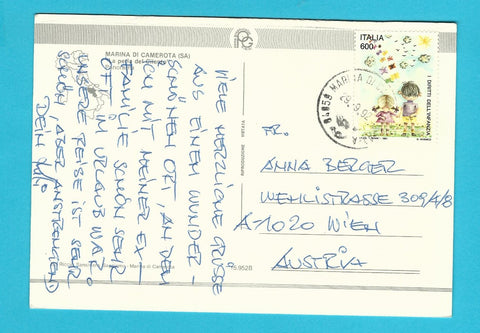 MARINA DI CAMEROTA (SA)
La perla del Cilento
Panorama
VIELE HERZLICHE GRÜSSE
AUS EINEM WUNDER-
SCHÖNEN ORT, AN DEM
ICH MIT MEINER EX-
FAMILIE SCHON SEHR
OFT IM URLAUB WAR.
UNSERE REISE IST SEHR
SCHÖN ABER ANSTRENGEND
DEIN
RIPRODUZIONE VIETATA
ITALIA
600
I DIRITTI DELL'INFANZIA
84059 MARINA DI
FR.
ANNA BERGER
WEHLISTRASSE 309/A/8
A-1020 WIEN
AUSTRIA
Marina di Camerota